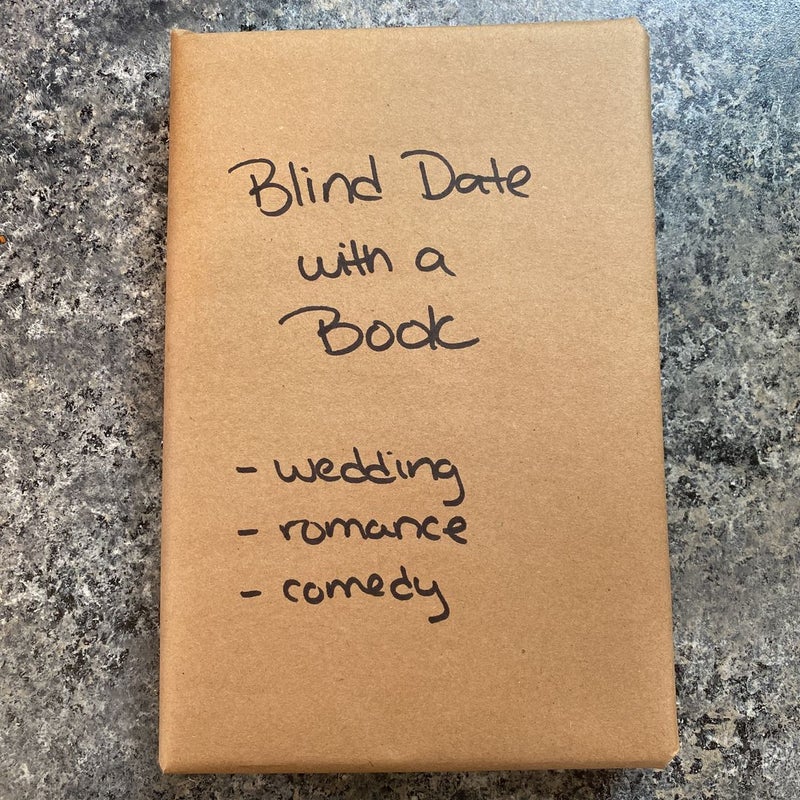 Blind Date
with a
Book
- wedding
- romance
- comedy